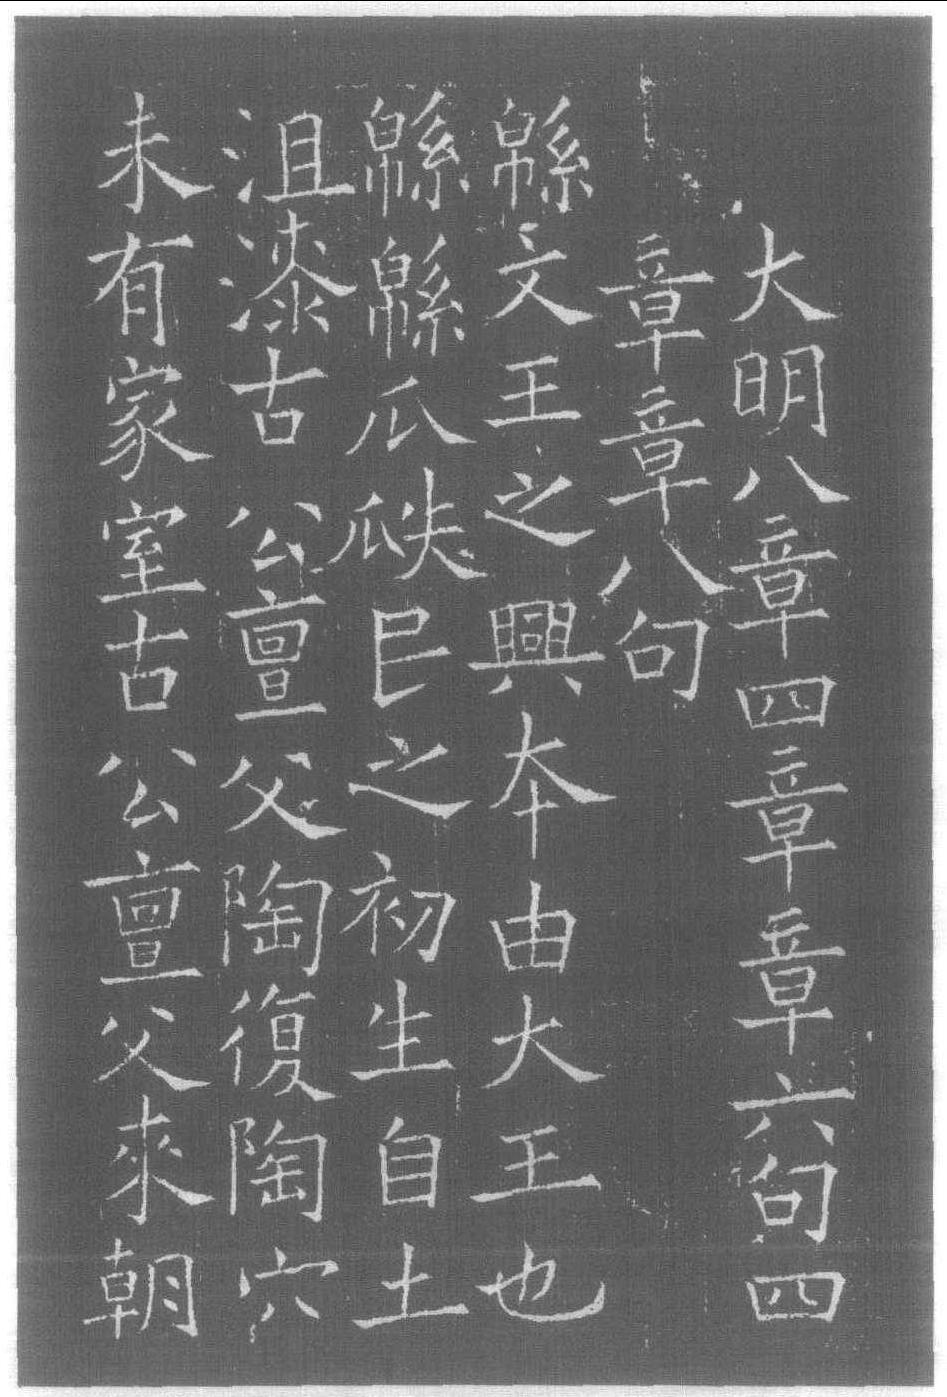 大明八章四章章六句四
章章八句
緜文王之興夲由大王也
緜緜瓜瓞民之初生自土
沮漆古公亶父陶復陶穴
未有家室古公亶父來朝